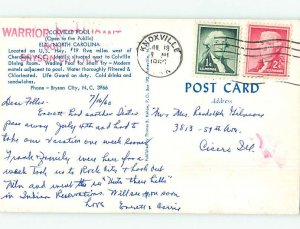 WARRIOR
COLVILLE POOL
(Open to the Public)
ELA, NORTH CAROLINA
Located on U.S. Hwy. #19 five miles west of
Cherokee
Ideally situated next to Colville
Dining Room. Wading Pool for Small Fry - Modern
motels adjacent to pool. Water thoroughly filtered &
Chlorinated. Life Guard on duty. Cold drinks and
sandwiches.
Phone - Bryson City, N. C. 3966
BRYSON
KNOXVILLE
POST CARD
Address
Dear Folks 7/16/60
Everett had another
pass away July 4th and had to
take our vacation one week sooner.
Frank & family were here for a
week took us to Rock City & Look out
Mtn and went to see "Unto these hills"
in Indian Reservations. Will see you soon
Love Everett & Carrie
Mr & Mrs Randolph
3813 - 59th Ave.
Cicero Ill.